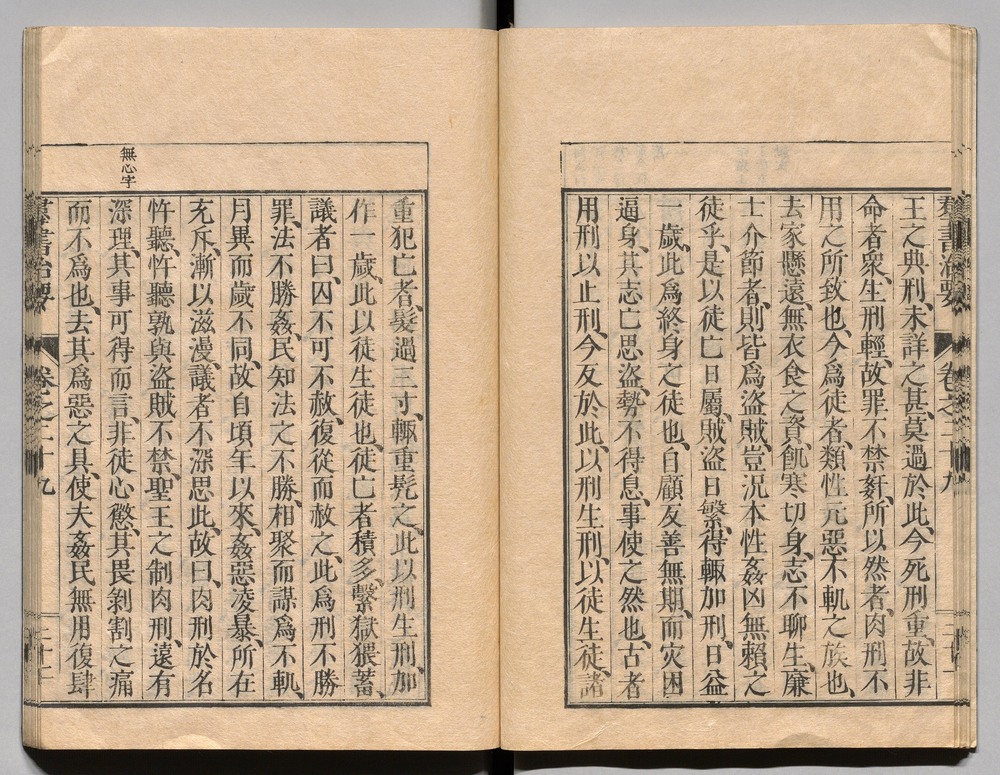 王之典刑、未詳之甚、莫過於此、今死刑重、故非
命者衆、生刑輕、故罪不禁姧、所以然者、肉刑不
用之所致也、今爲徒者、類性元惡不軌之族也、
去家懸遠、無衣食之資、飢寒切身、志不聊生、廉
士介節者、則皆爲盜賊、豈況本性姦凶無賴之
徒乎、是以徒亡日屬、賊盜日繁、得輙加刑、日益
一歲、此爲終身之徒也、自顧反善無期、而灾困
逼身、其志亡思盜、勢不得息、事使之然也、古者
用刑以止刑、今反於此、以刑生刑、以徒生徒、諸
重犯亡者、髮過三寸、輙重髠之、此以刑生刑、加
作一歲、此以徒生徒也、徒亡者積多、繫獄猥蓄、
議者曰、囚不可不赦、復從而赦之、此爲刑不勝
罪、法不勝姦、民知法之不勝、相聚而謀爲不軌、
月異而歲不同、故自頃年以來、姦惡凌暴、所在
充斥、漸以滋漫、議者不深思此、故曰、肉刑於名
忤聽、忤聽孰與盜賊不禁、聖王之制肉刑、遠有
深理、其事可得而言、非徒心懲其畏剝割之痛
而不爲也、去其爲惡之具、使夫姦民無用復肆
無心字
羣書治要 卷之二十九